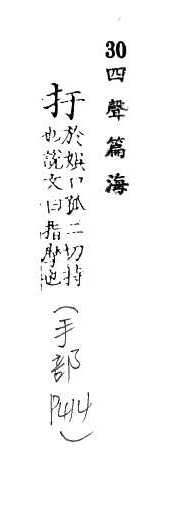 30四聲篇海
扜
於娛口孤二切持
也說文曰指摩也
(手部P414)